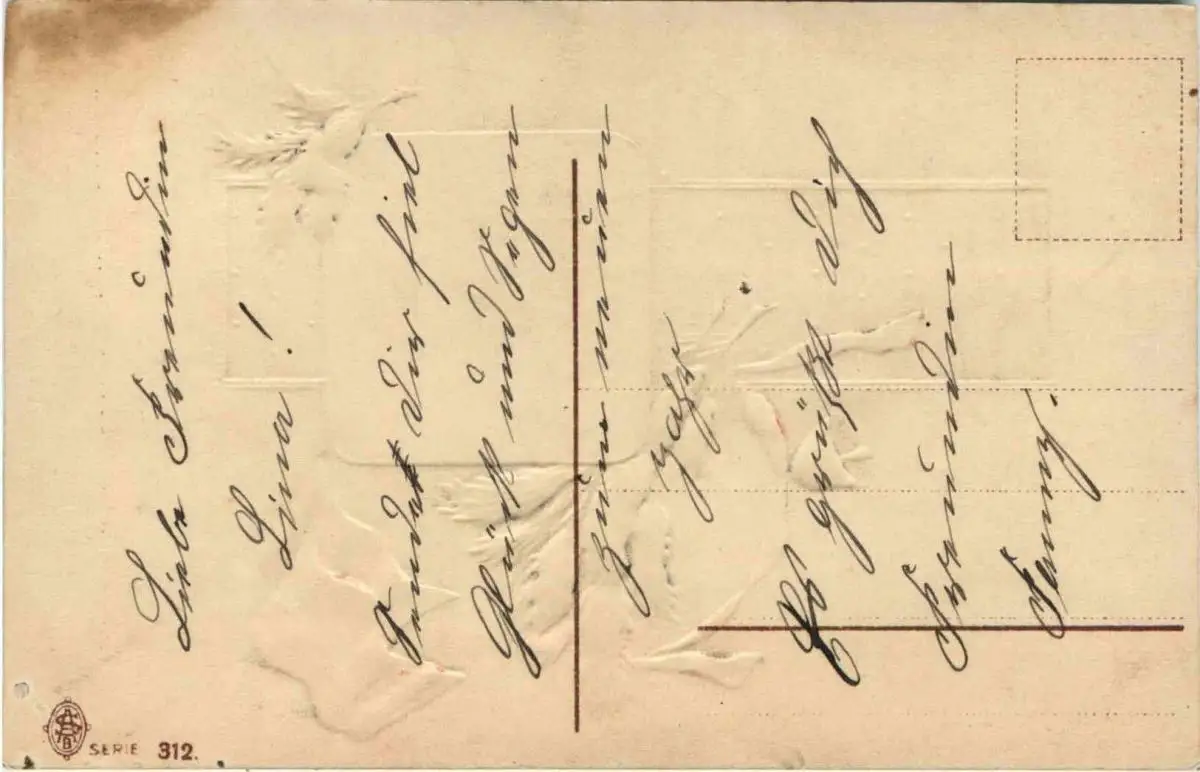 Liebe Freundin
Lina!
Sende Dir viel
Glück und Segen
zum neuen
Jahr
Es grüßt Dich
Freundin
Fanny.
SERIE 312.